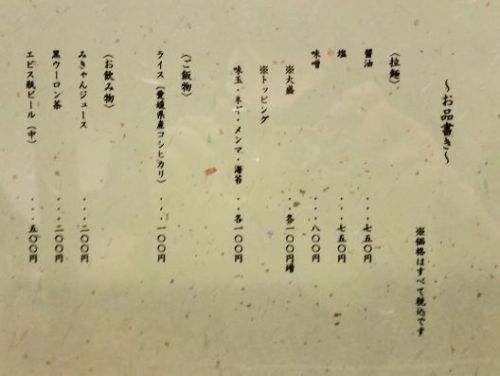 ～お品書き～
※価格はすべて税込です
（拉麺）
醤油・・・七五〇円
塩・・・七五〇円
味噌・・・八〇〇円
※大盛・・・各一〇〇円増
※トッピング
味玉・ネギ・メンマ・海苔・・・各一〇〇円
（ご飯物）
ライス（愛媛県産コシヒカリ）・・・一〇〇円
（お飲み物）
みきゃんジュース・・・二〇〇円
黒ウーロン茶・・・二〇〇円
エビス瓶ビール（中）・・・五〇〇円